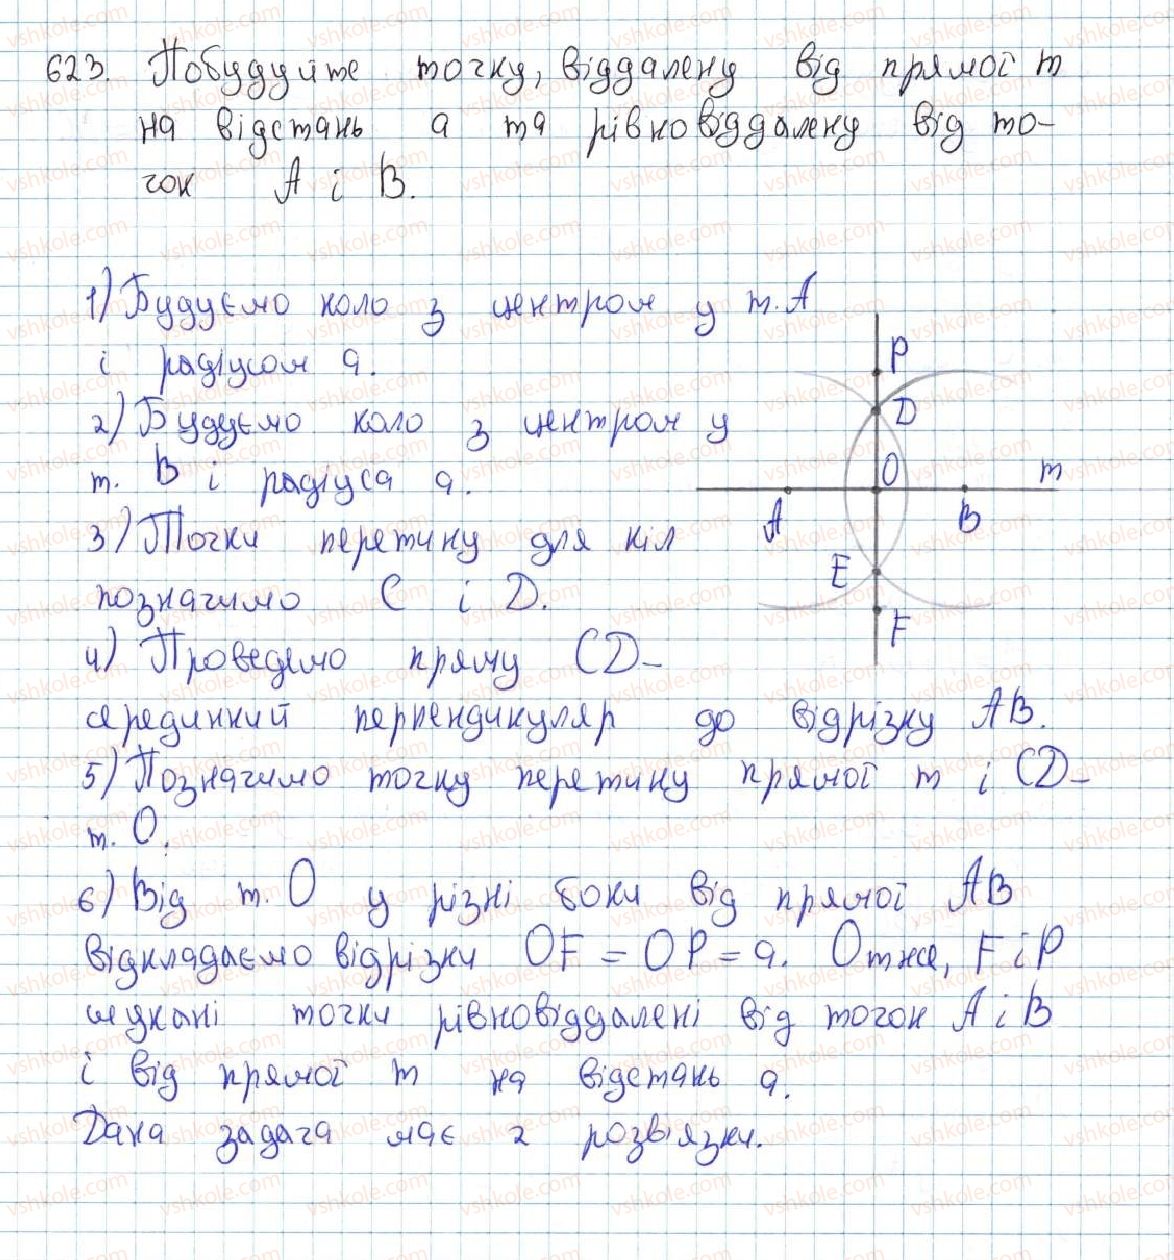 623. Побудуйте точку, віддалену від прямої m
на відстань a та рівновіддалену від то-
чок A і B.
1) Будуємо коло з центром у т. A
і радіусом a.
2) Будуємо коло з центром у
т. B і радіуса a.
3) Точки перетину для кіл
позначимо C і D.
4) Проведемо пряму CD -
серединний перпендикуляр до відрізку AB.
5) Позначимо точку перетину прямої m і CD -
т. O.
6) Від т. O у різні боки від прямої AB
відкладаємо відрізки OF = OP = a. Отже, F і P
шукані точки рівновіддалені від точок A і B
і від прямої m на відстань a.
Дана задача має 2 розв'язки.
P
D
O
m
A
B
E
F
vshkole.com